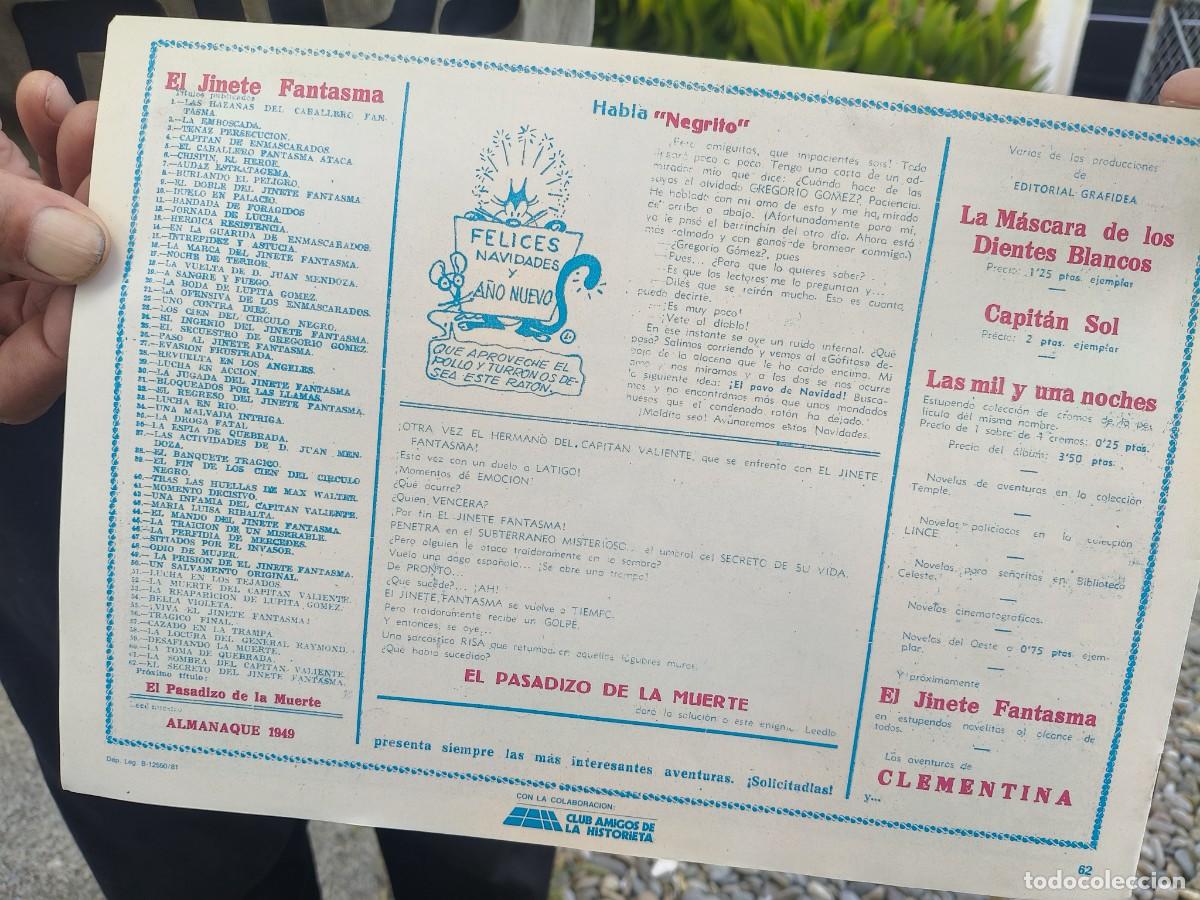 El Jinete Fantasma
Títulos publicados
1.—LAS HAZAÑAS DEL CABALLERO FAN-
TASMA.
2.—LA EMBOSCADA.
3.—TENAZ PERSECUCION.
4.—CAPITAN DE ENMASCARADOS.
5.—EL CABALLERO FANTASMA ATACA
6.—CRISPIN, EL HEROE.
7.—AUDAZ ESTRATAGEMA.
8.—BURLANDO EL PELIGRO.
9.—EL DOBLE DEL JINETE FANTASMA
10.—DUELO EN PALACIO.
11.—BANDADA DE FORAGIDOS
12.—JORNADA DE LUCHA.
13.—HEROICA RESISTENCIA.
14.—EN LA GUARIDA DE ENMASCARADOS.
15.—INTREPIDEZ Y ASTUCIA
16.—LA MARCA DEL JINETE FANTASMA.
17.—NOCHE DE TERROR.
18.—LA VUELTA DE D. JUAN MENDOZA.
19.—A SANGRE Y FUEGO.
20.—LA BODA DE LUPITA GOMEZ.
21.—LA OFENSIVA DE LOS ENMASCARADOS.
22.—UNO CONTRA DIEZ.
23.—LOS CIEN DEL CIRCULO NEGRO.
24.—EL INGENIO DEL JINETE FANTASMA.
25.—EL SECUESTRO DE GREGORIO GOMEZ.
26.—PASO AL JINETE FANTASMA.
27.—EVASION FRUSTRADA.
28.—REVUELTA EN LOS ANGELES.
29.—LUCHA EN ACCION
30.—LA JUGADA DEL JINETE FANTASMA
31.—BLOQUEADOS POR LAS LLAMAS.
32.—EL REGRESO DEL JINETE FANTASMA.
33.—LUCHA EN RIO.
34.—UNA MALVADA INTRIGA.
35.—LA DROGA FATAL
36.—LA ESPIA DE QUEBRADA.
37.—LAS ACTIVIDADES DE D. JUAN MEN-
DOZA.
38.—EL BANQUETE TRAGICO.
39.—EL FIN DE LOS CIEN DEL CIRCULO
NEGRO.
40.—TRAS LAS HUELLAS DE MAX WALTER.
41.—MOMENTO DECISIVO.
42.—UNA INFAMIA DEL CAPITAN VALIENTE.
43.—MARIA LUISA RIBALTA.
44.—EL MANDO DEL JINETE FANTASMA.
45.—LA TRAICION DE UN MISERABLE.
46.—LA PERFIDIA DE MERCEDES.
47.—SITIADOS POR EL INVASOR.
48.—ODIO DE MUJER.
49.—LA PRISION DE EL JINETE FANTASMA.
50.—UN SALVAMENTO ORIGINAL.
51.—LUCHA EN LOS TEJADOS.
52.—LA MUERTE DEL CAPITAN VALIENTE.
53.—LA REAPARICION DE LUPITA GOMEZ.
54.—BELLA VIOLETA.
55.—¡VIVA EL JINETE FANTASMA!
56.—TRAGICO FINAL.
57.—CAZADO EN LA TRAMPA.
58.—LA LOCURA DEL GENERAL RAYMOND.
59.—DESAFIANDO LA MUERTE.
60.—LA TOMA DE QUEBRADA.
61.—LA SOMBRA DEL CAPITAN VALIENTE.
62.—EL SECRETO DEL JINETE FANTASMA.
Próximo título:
El Pasadizo de la Muerte
Leed nuestro
ALMANAQUE 1949
Dep. Leg. B-12550/81
Habla "Negrito"
FELICES
NAVIDADES
Y
AÑO NUEVO
QUE APROVECHE EL
POLLO Y TURRON OS DE-
SEA ESTE RATON.
¡Pero amiguitos, que impacientes sois! Todo
poco a poco. Tengo una carta de un ad-
mirador mío que dice: ¿Cuándo hace de las
suyas el olvidado GREGORIO GOMEZ? Paciencia.
He hablado con mi amo de esto y me ha mirado
de arriba a abajo. (Afortunadamente para mí,
ya le pasó el berrinchín del otro día. Ahora está
más calmado y con ganas de bromear conmigo.)
—¿Gregorio Gómez?, pues
—Pues... ¿Para qué lo quieres saber?
—Es que los lectores me lo preguntan y...
—Diles que se reirán mucho. Eso es cuanto
puedo decirte.
—¡Es muy poco!
—¡Vete al diablo!
En ese instante se oye un ruido infernal. ¿Qué
pasa? Salimos corriendo y vemos al «Gafitas» de-
bajo de la alacena que le ha caído encima. Mi
amo y nos miramos y a los dos se nos ocurre
la siguiente idea: ¡El pavo de Navidad! Busca-
mos y no encontramos más que unos mondados
huesos que el condenado ratón ha dejado.
¡Maldito sea! Ayunaremos estas Navidades.
¡OTRA VEZ EL HERMANO DEL CAPITAN VALIENTE, que se enfrenta con EL JINETE
FANTASMA!
¡Esta vez con un duelo a LATIGO!
¡Momentos de EMOCION!
¿Qué ocurre?
¿Quien VENCERA?
¡Por fin EL JINETE FANTASMA!
PENETRA en el SUBTERRANEO MISTERIOSO... el umbral del SECRETO DE SU VIDA.
¿Pero alguien le ataca traidoramente en la sombra?
Vuela una daga española... ¡Se abre una trampa!
De PRONTO...
¿Que sucede?... ¡AH!
El JINETE FANTASMA se vuelve a TIEMPO.
Pero traidoramente recibe un GOLPE.
Y entonces, se oye...
Una sarcástica RISA que retumba en aquellos lúgubres muros.
¿Qué había sucedido?
EL PASADIZO DE LA MUERTE
dará la solución a este enigma. Leedlo
presenta siempre las más interesantes aventuras. ¡Solicitadlas!
CON LA COLABORACION:
CLUB AMIGOS DE
LA HISTORIETA
Varias de las producciones
de
EDITORIAL GRAFIDEA
La Máscara de los
Dientes Blancos
Precio: 1'25 ptas. ejemplar
Capitán Sol
Precio: 2 ptas. ejemplar
Las mil y una noches
Estupenda colección de cromos de la pe-
lícula del mismo nombre.
Precio de 1 sobre de 4 cromos: 0'25 ptas.
Precio del álbum: 3'50 ptas.
Novelas de aventuras en la colección
Temple.
Novelas policíacas en la colección
LINCE.
Novelas para señoritas en Biblioteca
Celeste.
Novelas cinematográficas.
Novelas del Oeste a 0'75 ptas. ejem-
plar.
Y próximamente
El Jinete Fantasma
en estupendas novelitas al alcance de
todos.
Las aventuras de
CLEMENTINA
y...
62
todocoleccion